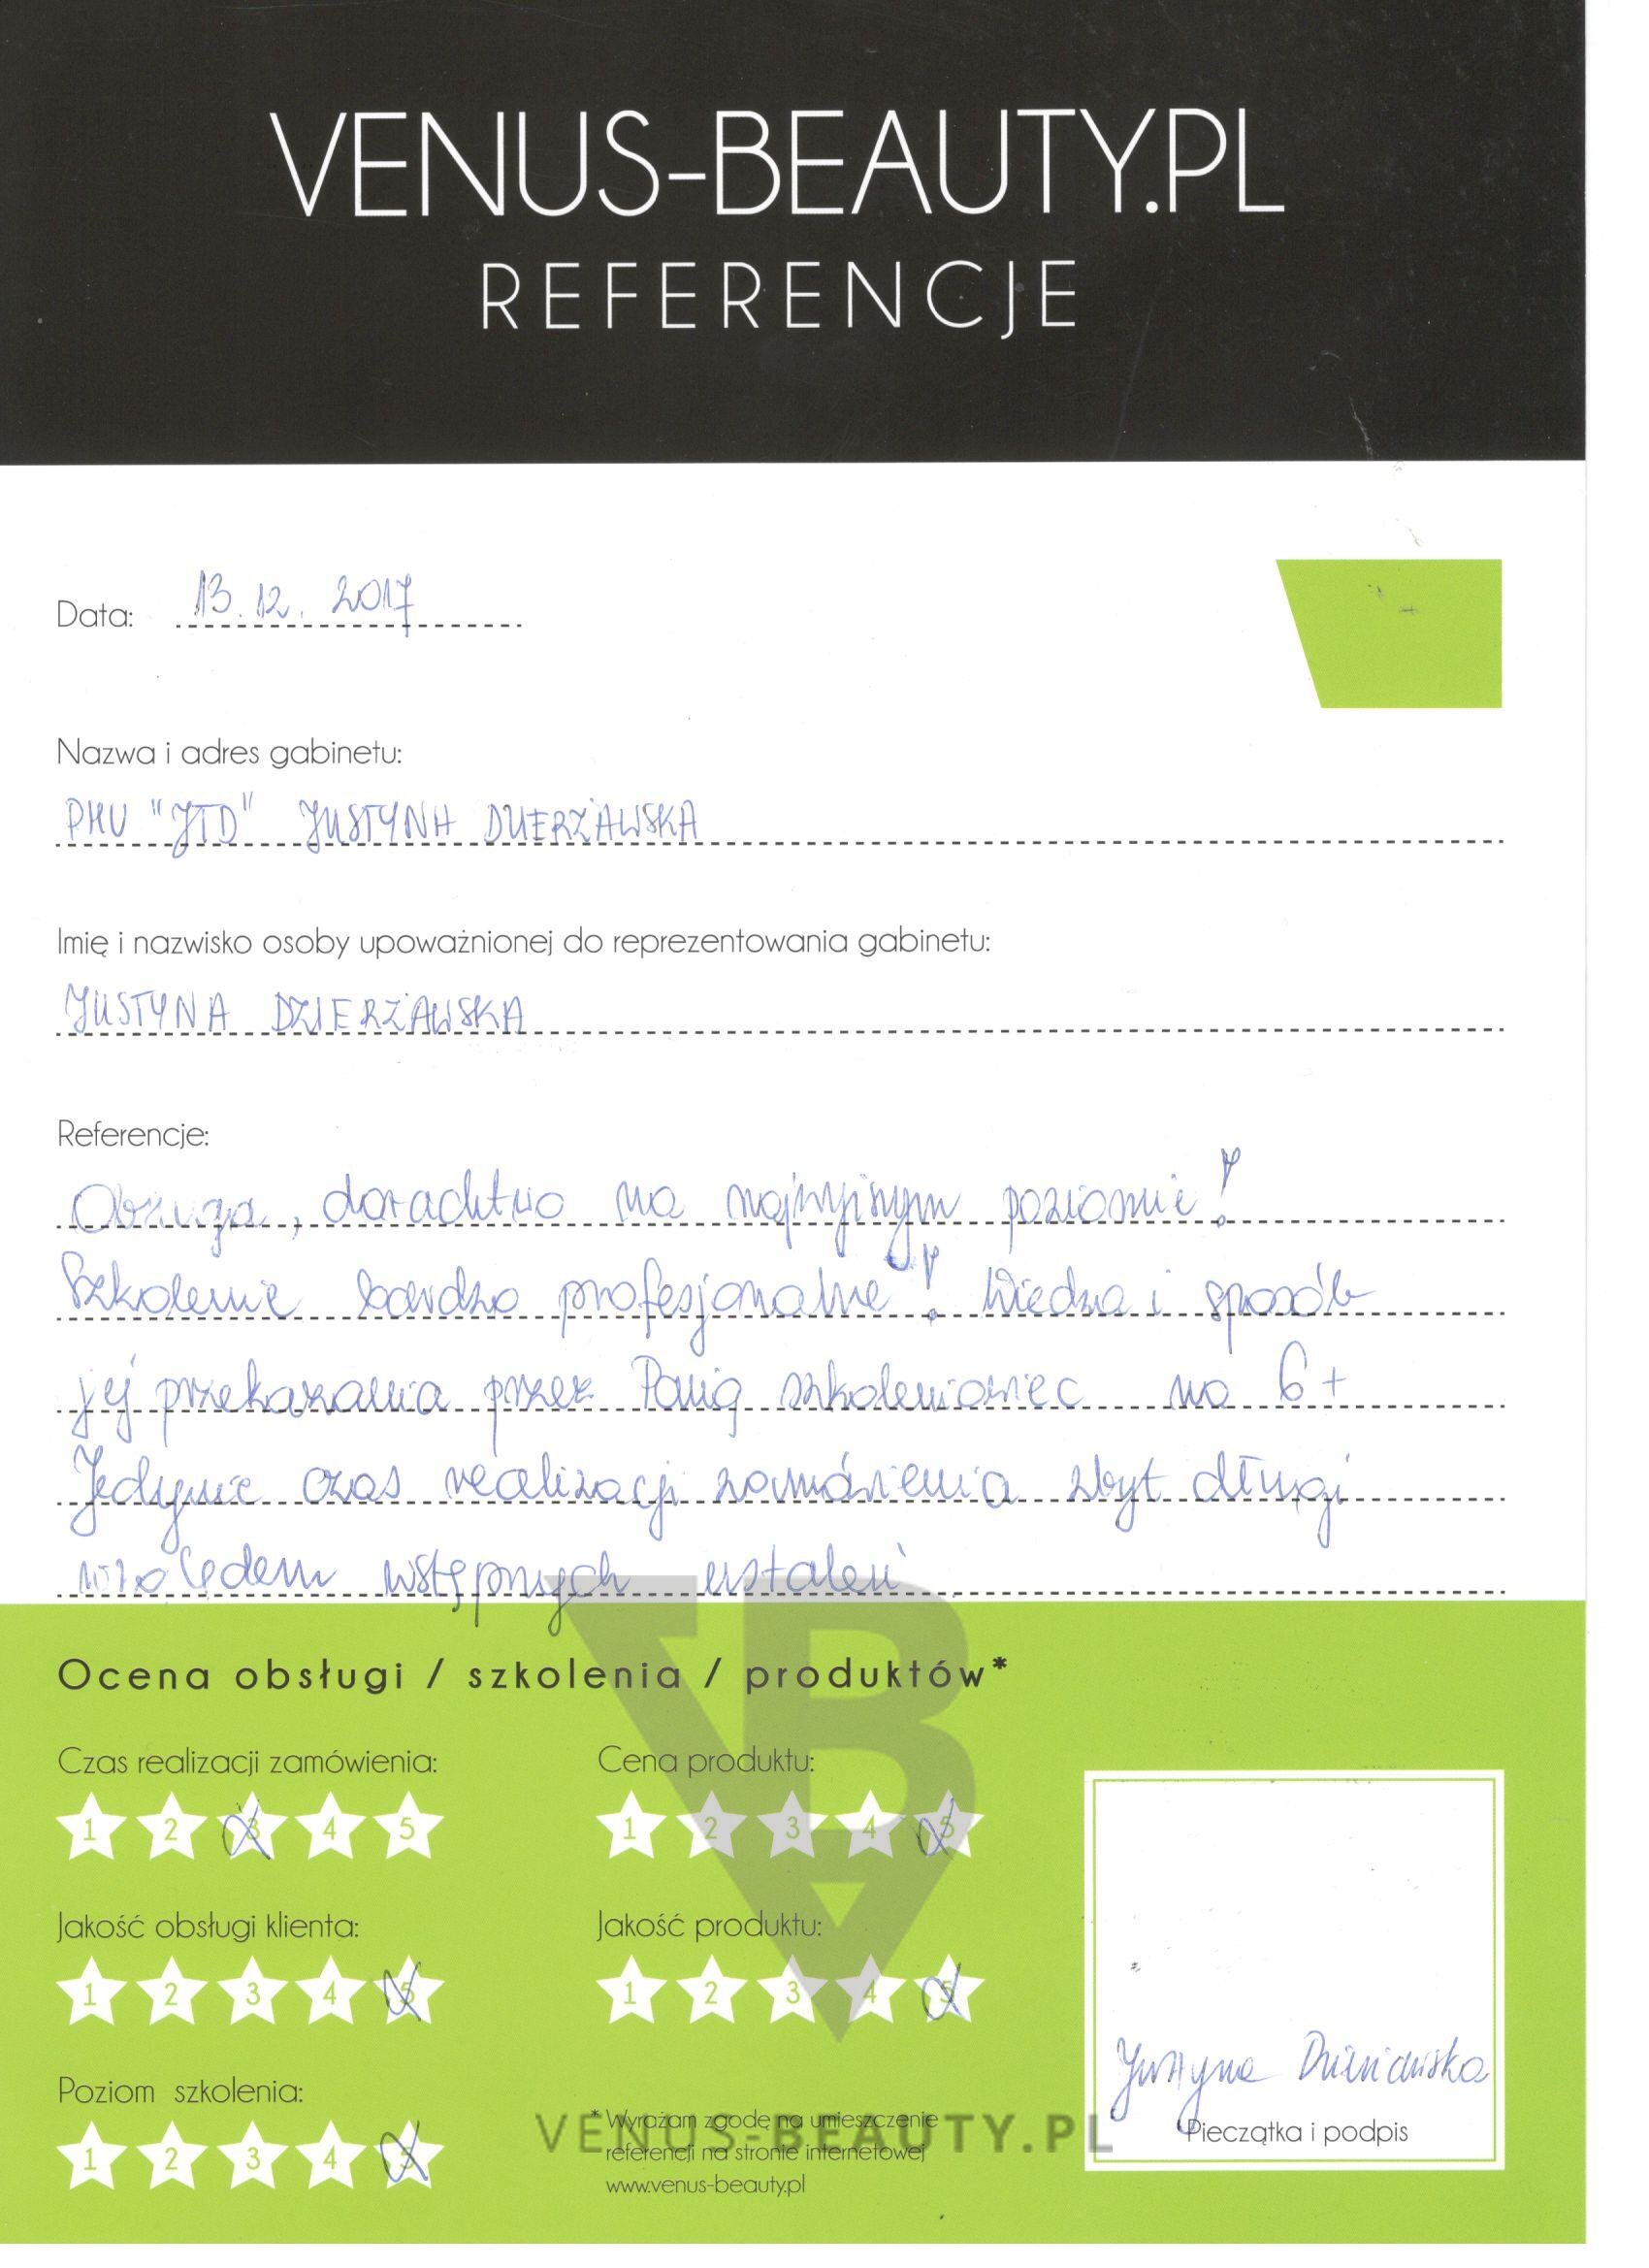 VENUS-BEAUTY.PL
REFERENCJE
Data: 13.12.2017
Nazwa i adres gabinetu:
PHU "JTD" JUSTYNA DZIERŻAWSKA
Imię i nazwisko osoby upoważnionej do reprezentowania gabinetu:
JUSTYNA DZIERŻAWSKA
Referencje:
Obsługa, doradztwo na najwyższym poziomie!
Szkolenie bardzo profesjonalne! Wiedza i sposób
jej przekazania przez Panią szkoleniowiec na 6+
Jedynie czas realizacji zamówienia zbyt długi
względem wstępnych ustaleń
Ocena obsługi / szkolenia / produktów*
Czas realizacji zamówienia:
1 2 3 4 5
Cena produktu:
1 2 3 4 5
Jakość obsługi klienta:
1 2 3 4 5
Jakość produktu:
1 2 3 4 5
Poziom szkolenia:
1 2 3 4 5
* Wyrażam zgodę na umieszczenie
referencji na stronie internetowej
www.venus-beauty.pl
VENUS-BEAUTY.PL
Justyna Dzierżawska
Pieczątka i podpis